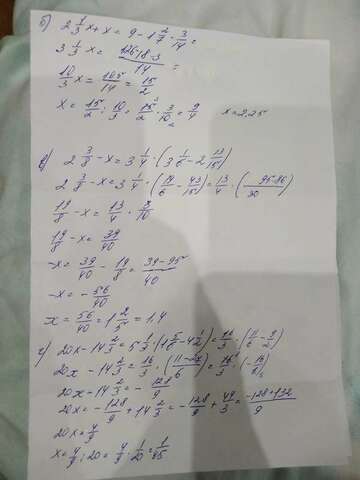 б) 2 1/3 x + x = 9 - 1 2/7 · 3/14 =
3 1/3 x = (126-18-3)/14 =
10/3 x = 105/14 = 15/2
x = 15/2 : 10/3 = 15/2 · 3/10 = 9/4 x = 2,25
в) 2 3/8 - x = 3 1/4 · (3 1/6 - 2 13/15)
2 3/8 - x = 3 1/4 · (19/6 - 43/15) = 13/4 · (95-86/30)
19/8 - x = 13/4 · 3/10
19/8 - x = 39/40
-x = 39/40 - 19/8 = (39-95)/40
-x = -56/40
x = 56/40 = 1 2/5 = 1,4
г) 20x - 14 2/3 = 5 1/3 · (1 5/6 - 4 1/2) = 16/3 · (11/6 - 9/2)
20x - 14 2/3 = 16/3 · (11-27/6) = 16/3 · (-16/6)
20x - 14 2/3 = -128/9
20x = -128/9 + 14 2/3 = -128/9 + 44/3 = (-128+132)/9
20x = 4/9
x = 4/9 : 20 = 4/9 · 1/20 = 1/45